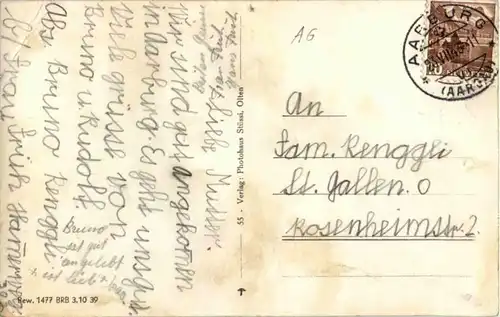 Liebe Mutter.
Wir sind gut angekommen
in Aarburg. Es geht uns gut.
Viele grüsse von
Bruno u. Rudolf.
Abs. Bruno Renggli
by Frau Frick
Bruno
ist gut
angelebt
ist lieb
AG
AARBURG
(AARGAU)
An
Fam. Renggli
St. Gallen. O
Rosenheimstr. 2.
55 - Verlag: Photohaus Stüssi, Olten
Bew. 1477 BRB 3.10 39